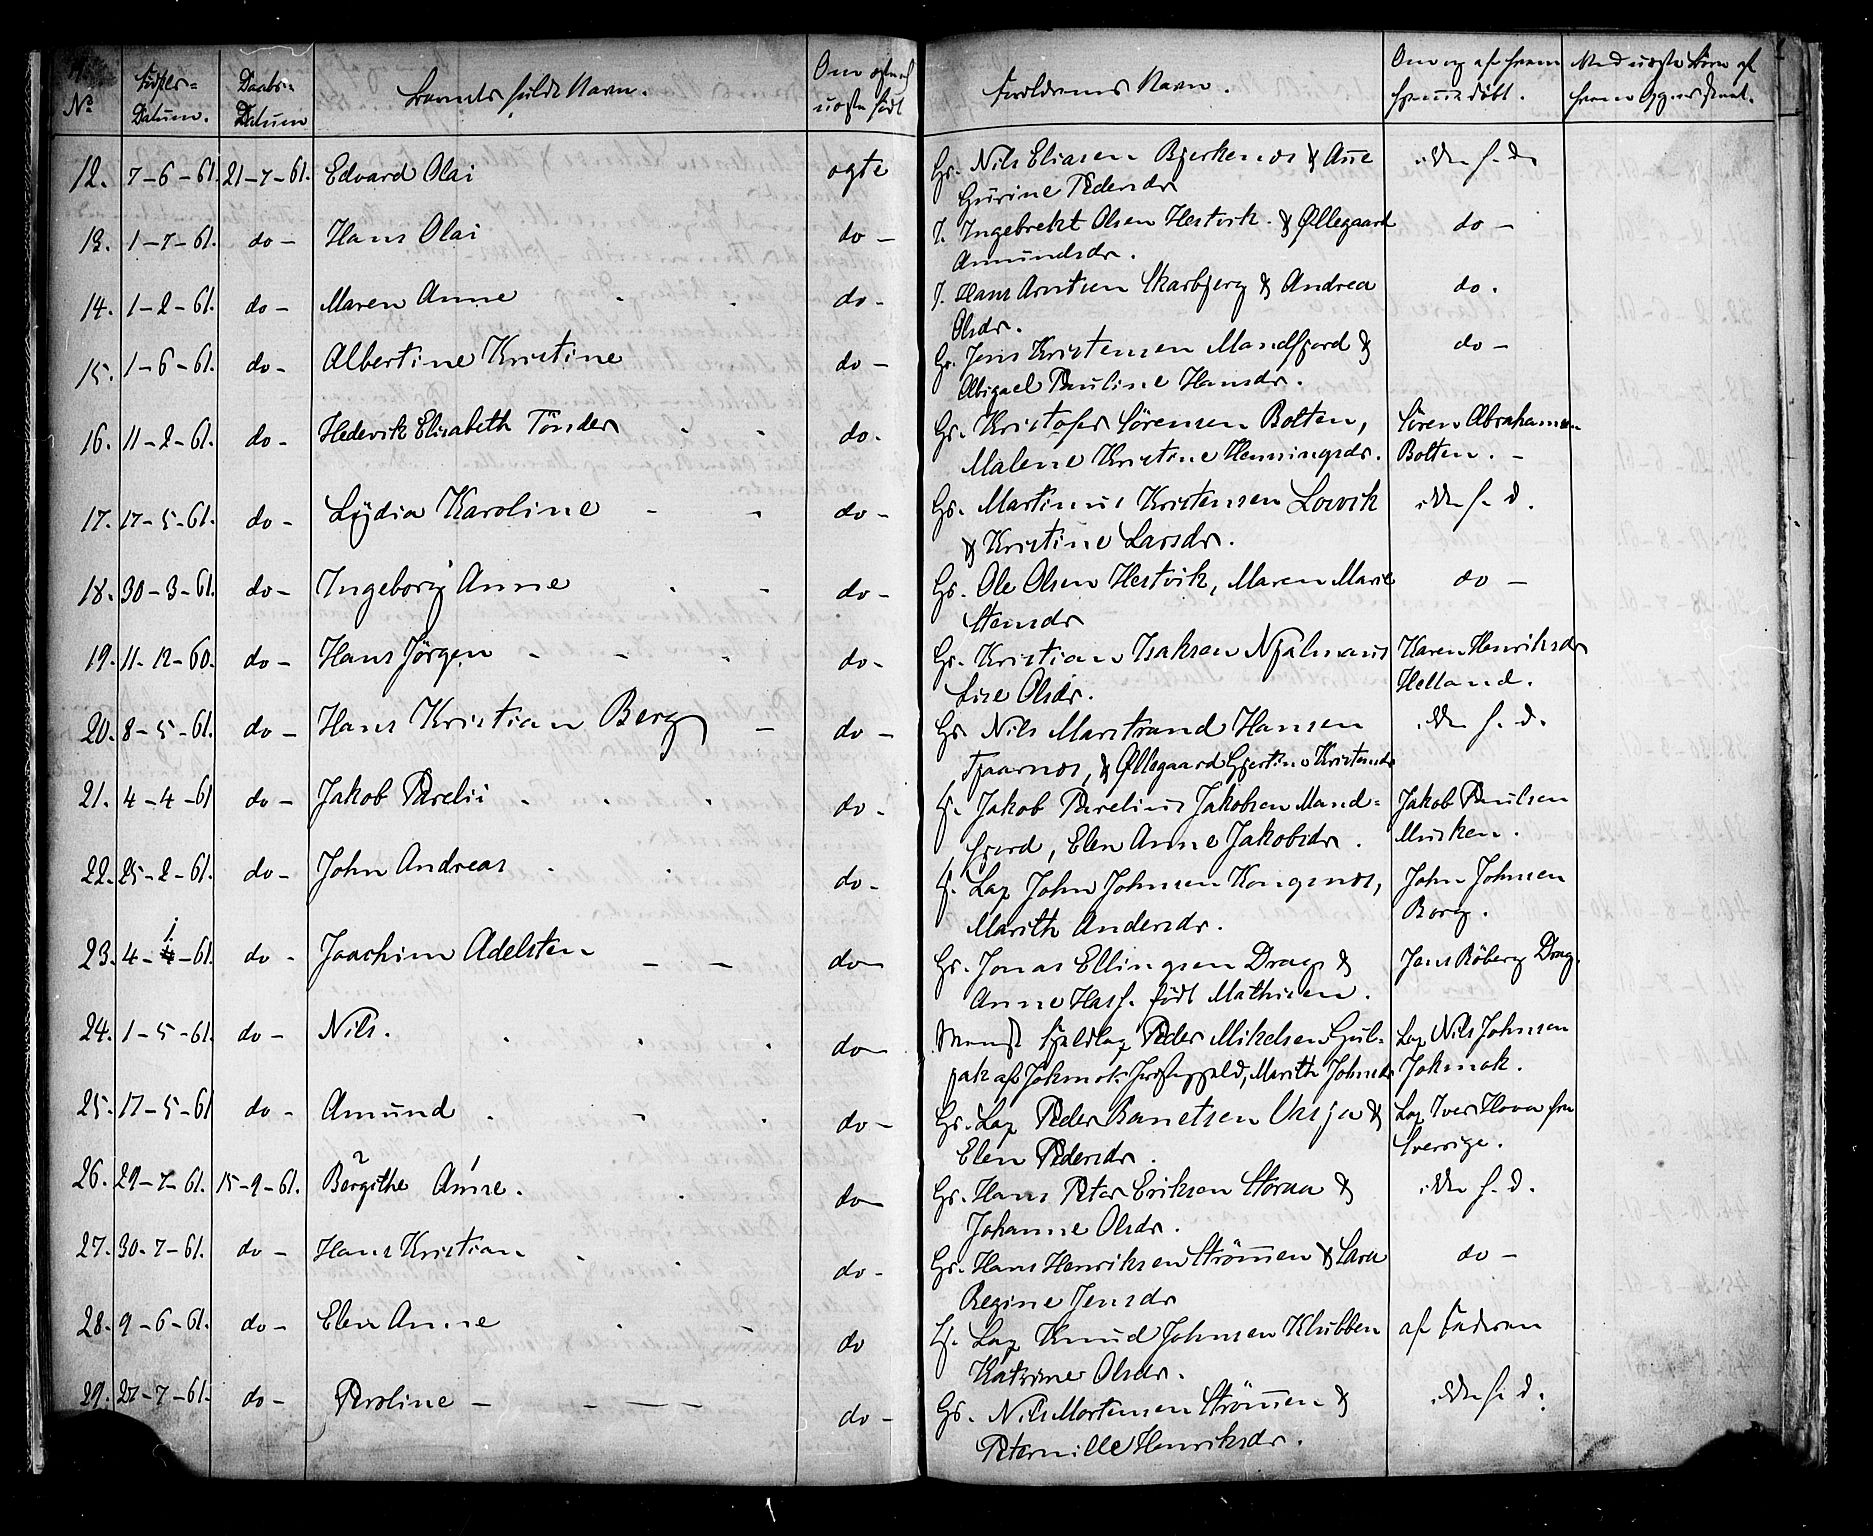 No Fødsels= Datum. Daabs= Datum Barnets fulde Navn. Om ægte el uægte født Forældrenes Navn. Om og af hvem hjemmedøbt.
12. 7-6-61. 21-7-61. Edvard Olai ægte Gr. Nils Eliasen Bjerkenæs & Ane ikke h. d.
Gurine Pedersdr
13. 1-7-61. do - Hans Olai do - J. Ingebrekt Olsen Hestvik & Øllegaard do -
Amundsdr.
14. 1-2-61. do - Maren Anne do - J. Hans Arntsen Skarbjerg & Andrea do.
Olsdr.
15. 1-6-61. do - Albertine Kristine do - Gr. Jens Kristensen Mandfjord & do -
Abigael Pauline Hansdr.
16. 11-2-61. do - Hedevik Elisabeth Tönder do. Gr. Kristofer Sörensen Bolten, Sören Abrahamsen
Malene Kristine Henningsdr. Bolten. -
17. 17-5-61. do - Lydia Karoline do - Gr. Martinus Kristensen Lovik ikke h. d.
& Kristine Larsdr.
18. 30-3-61. do - Ingeborg Anne do - Gr. Ole Olsen Hestvik, Maren Marie do -
Stensdr
19. 11-12-60. do - Hans Jörgen do - Gr. Kristian Isaksen Njalmans Karen Henriksdr
Lise Olsdr. Helland.
20. 8-5-61. do - Hans Kristian Berg do - Gr. Nils Marstrand Hansen ikke h. d.
Tjaarnæs, & Øllegaard Gjertine Kristensdr
21. 4-4-61 do - Jakob Parelii do - Jakob Parelius Jakobsen Mand= Jakob Paulsen
fjord, Elen Anne Jakobsdr. Musken.
22. 25-2-61. do - John Andreas do - Lap John Johnsen Kongsnæs, John Johnsen
Marith Andersdr. Borg.
23. 4-1-61. do - Joachim Adelsten do - Gr. Jonas Ellingsen Drag & Jens Röberg Drag.
Anne Hass. født Mathisen.
24. 1-5-61. do - Nils. do - Fjeldlap Peder Mikelsen Lap Nils Johnsen
af Jokmoks Præstegjeld, Marith Johnsdr Jokmok.
25. 17-5-61 do - Amund do - Gr. Lap Peder &
Lap Iver fra
Elen Pedersdr. Sverige.
26. 29-7-61. 15-9-61. Bergithe Anne. do - Gr. Hans Peter Eriksen Storaa & ikke h. d.
Johanne Olsdr.
27. 30-7-61. do - Hans Kristian do - Gr. Hans Henriksen Strömmen & Sara do -
Regine Jensdr
28. 9-6-61. do - Elen Anne do Lap Knud Johnsen Klubben af Faderen
Katrine Olsdr.
29. 27-7-61. do - Peroline - do - Gr. Nils Mortensen Strömmen & ikke h. d.
Peternille Henriksdr.